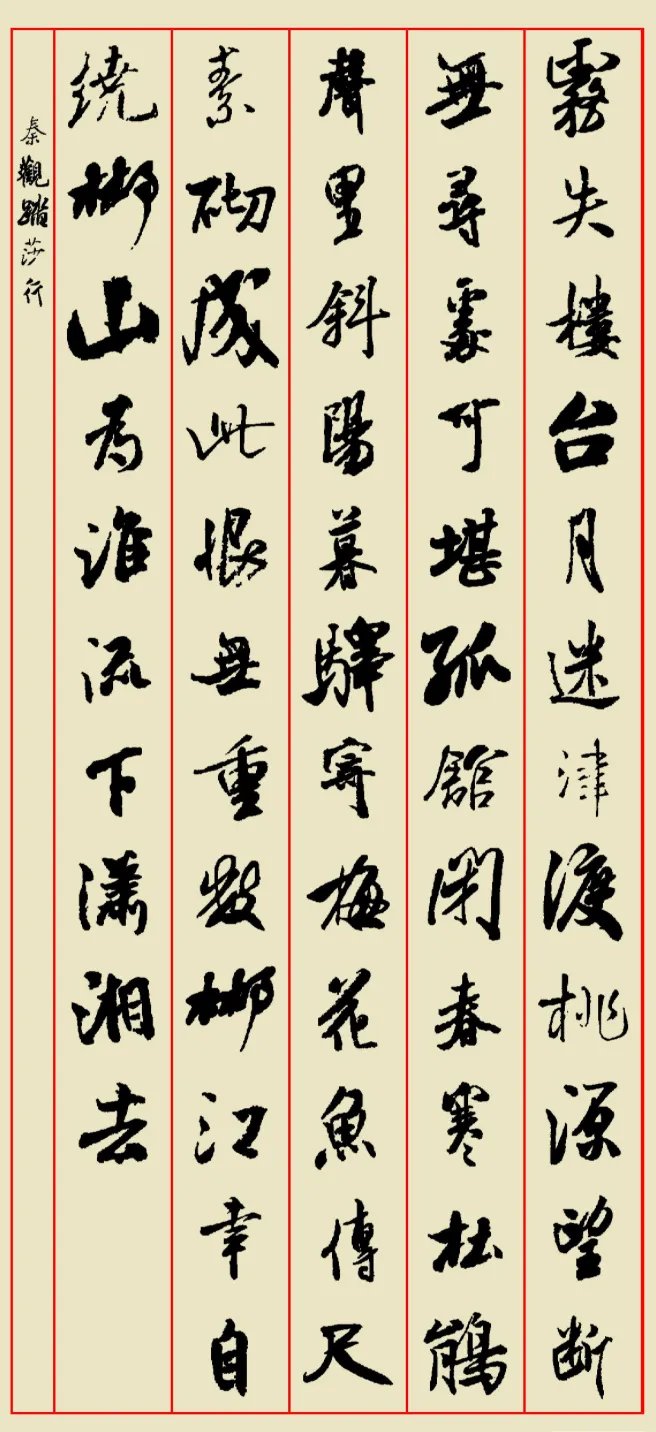 霧失樓台月迷津渡桃源望断
無尋處可堪孤館閉春寒杜鵑
聲里斜陽暮驛寄梅花魚傳尺
素砌成此恨無重數郴江幸自
繞郴山為誰流下瀟湘去
秦觀踏莎行